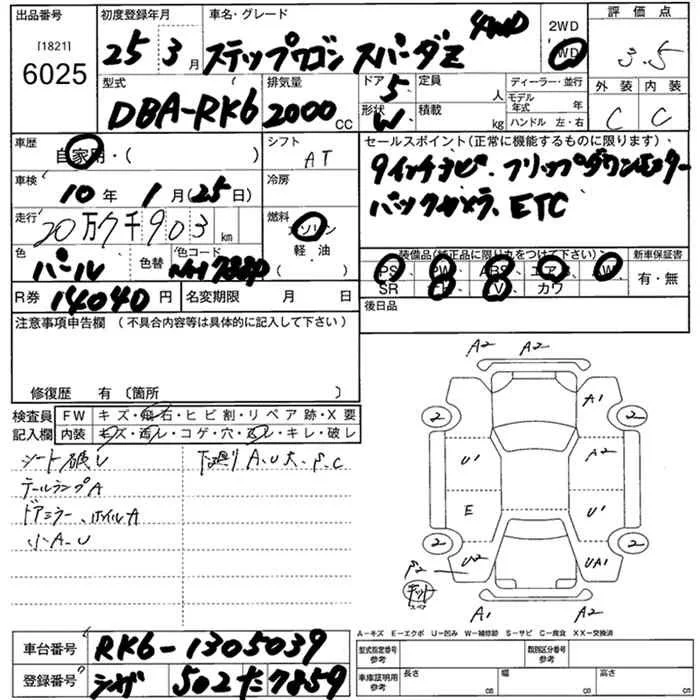 出品番号
[1821]
6025
初度登録年月
25 3月
車名・グレード
ステップワゴン スパーダZ 4WD
2WD
4WD
評価点
3.5
外装 内装
C C
型式
DBA-RK6
排気量
2000 cc
ドア 5
形状 W
定員 人
積載 kg
ディーラー・並行
モデル年式 年
ハンドル 左・右
車歴
自家用・( )
シフト
AT
車検
10年 1月(25日)
冷房
走行
20万7千903 km
燃料
ガソリン
軽・油
( )
色
パール
色替
色コード
R券 14040円
名変期限 月 日
セールスポイント(正常に機能するものに限ります)
9インチナビ、フリップダウンモニター
バックカメラ、ETC
装備品(純正品に限り丸をつけて下さい)
PS PW ABS エアB AW
SR カワ
新車保証書
有・無
後日品
注意事項申告欄 (不具合内容等は具体的に記入して下さい)
修復歴 有〔箇所 〕
検査員
記入欄
FW キズ・飛石・ヒビ割・リペア跡・X要
内装 キズ・汚レ・コゲ・穴・スレ・キレ・破レ
シート破レ
テールランプA
ドアミラー、ホイルA
小A.U
下廻りA.U大、S.C
A2 A2
A1
2 2
U1 A2
E U1
2 2
U2 UA1
S2
キット
スペア
A1 A2
A−キズ E−エクボ U−凹み W−補修跡 S−サビ C−腐食 XX−交換済
車台番号 RK6-1305039
登録番号 シガ 502 た 7859
型式指定番号
参考
類別区分番号
参考
車庫証明用
参考
長さ cm
幅 cm
高さ cm